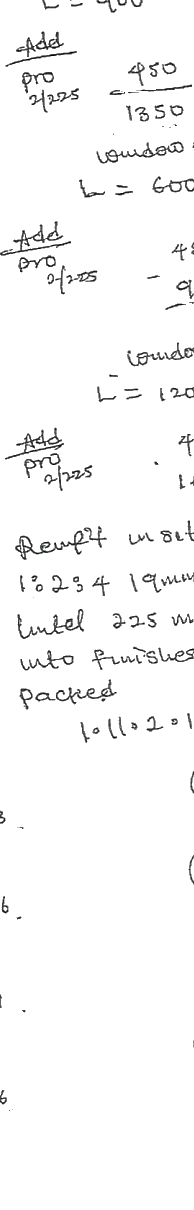 L = 900
Add
pro
2/225 450
1350
window
L = 600
Add
pro
2/225 -
window
L = 120
Add
pro
2/225
in sit
1:2:4 19mm
lintel 225 m
into finishes
packed
1.11.2.1
6
6